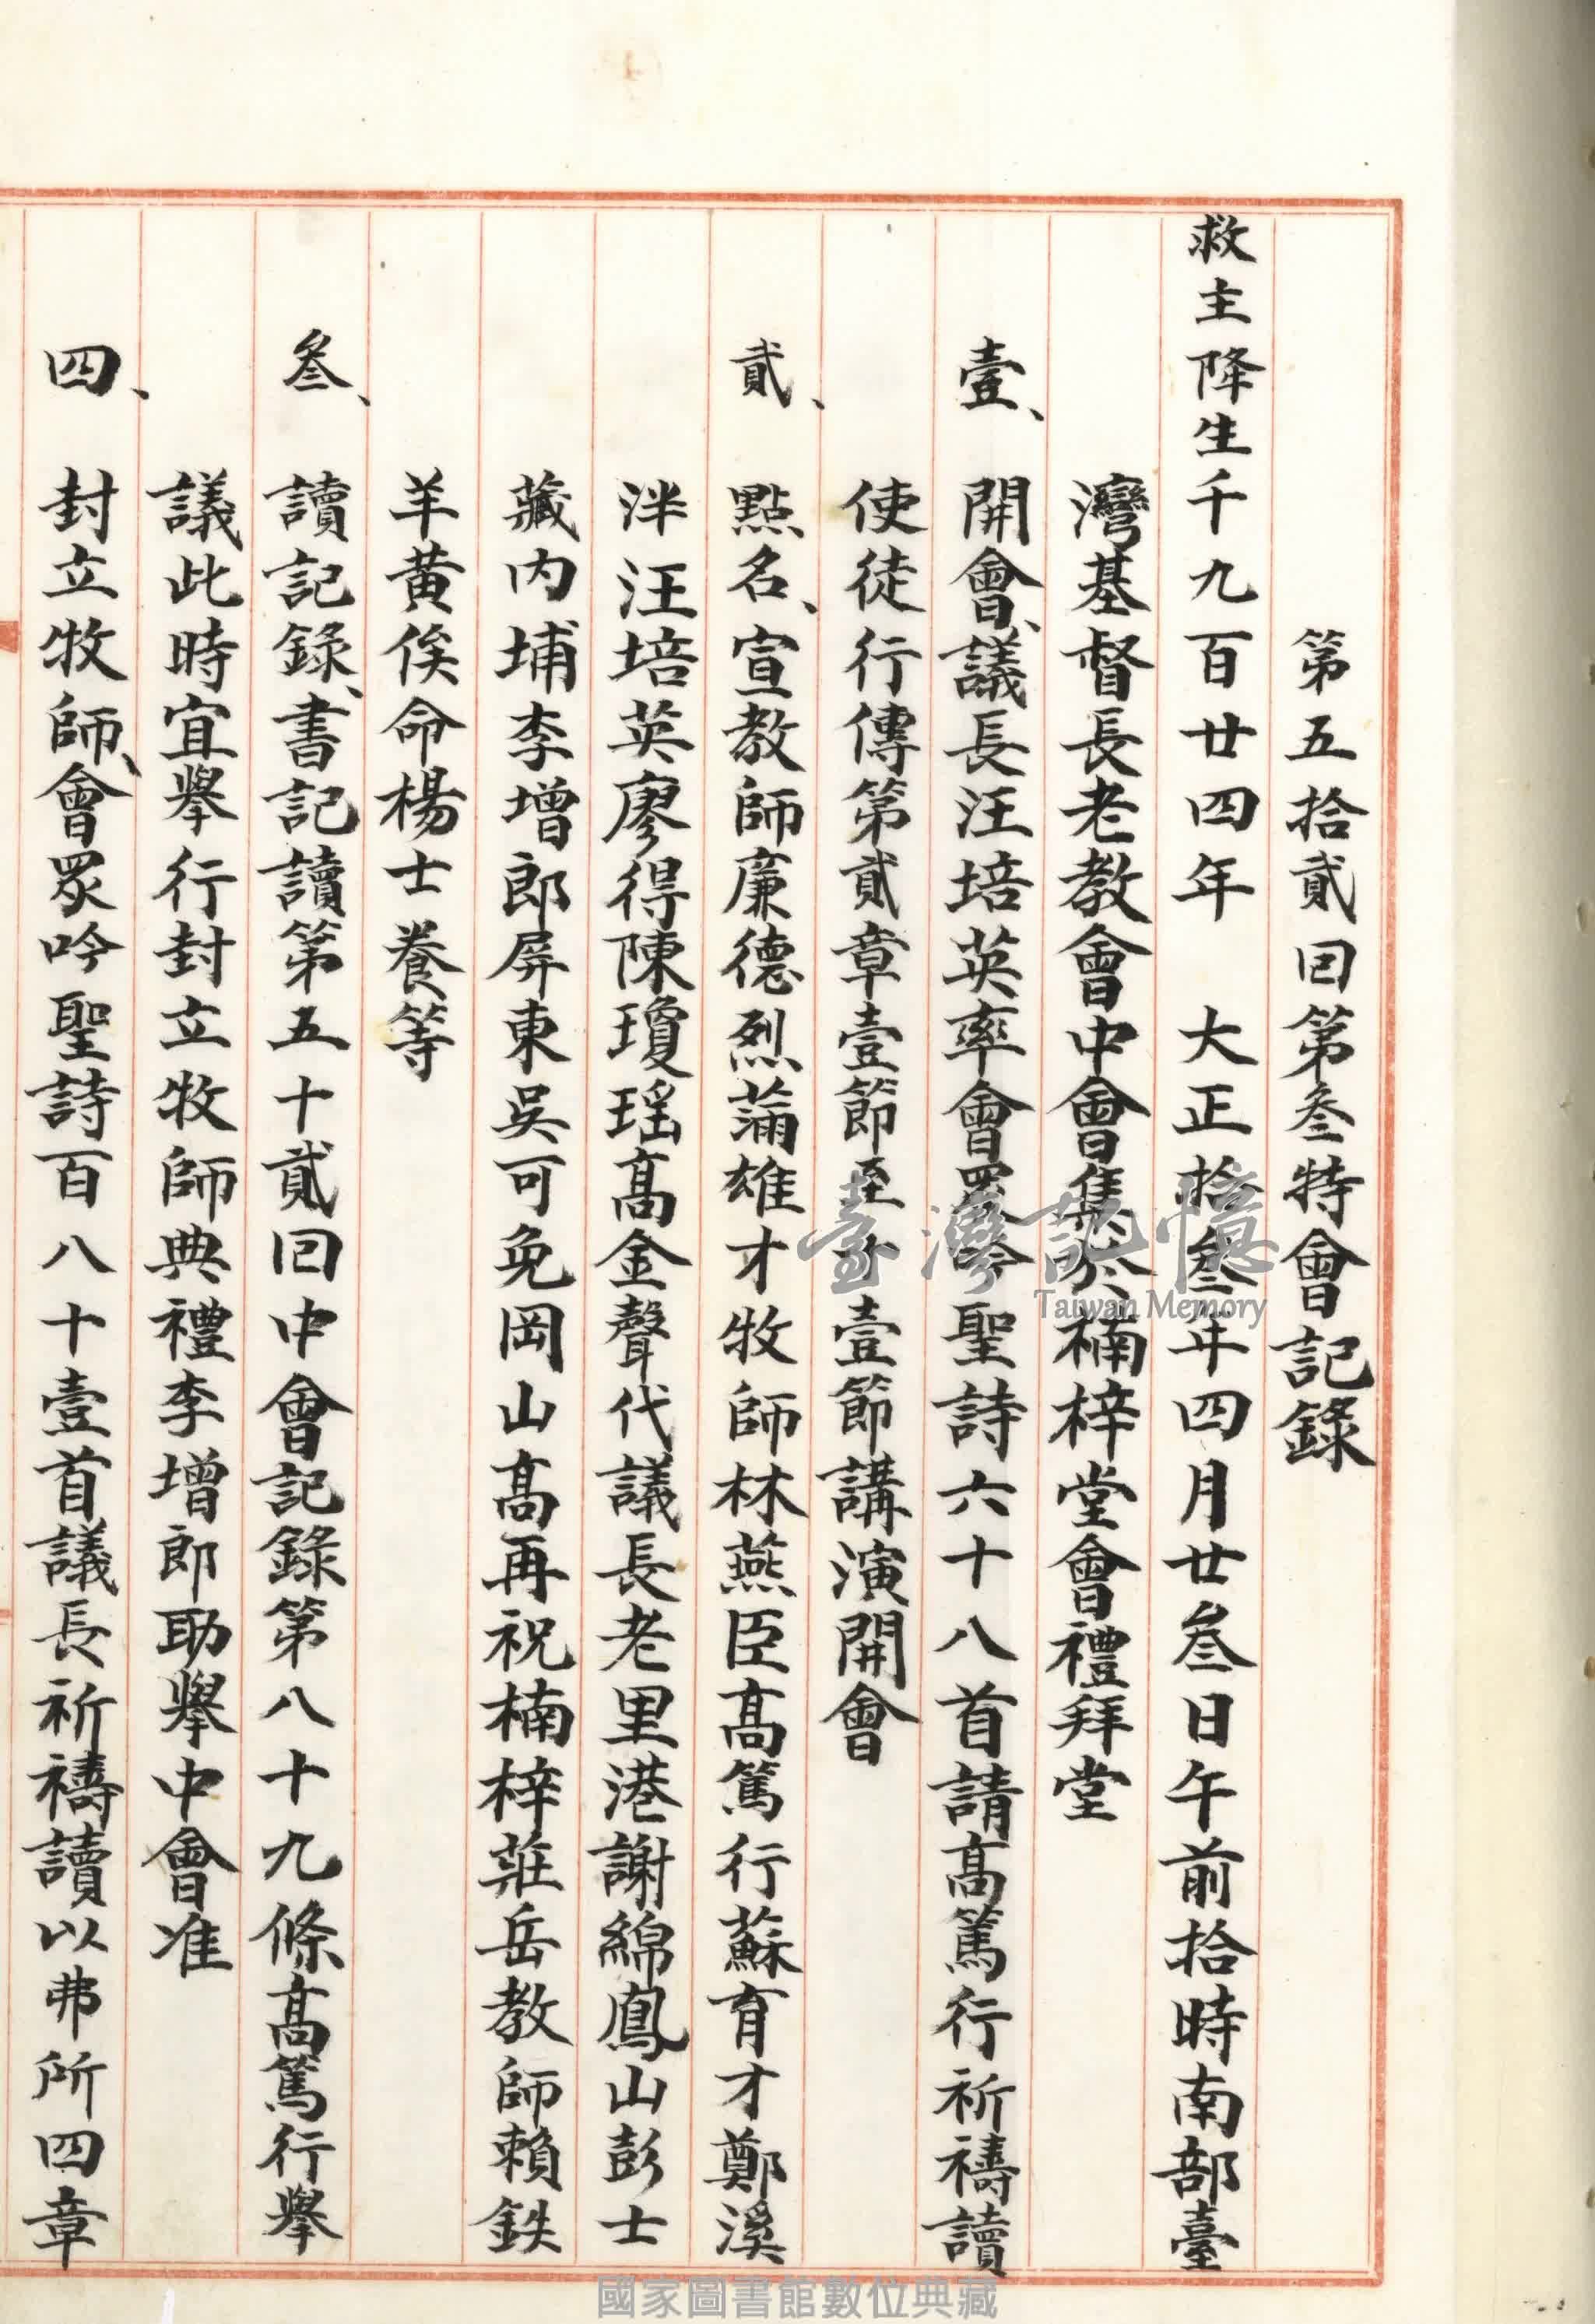 第五拾貳囘第叁特會記錄
救主降生千九百廿四年　大正拾叁年四月廿叁日午前拾時南部臺
灣基督長老教會中會集於楠梓堂會禮拜堂
壹、開會、議長汪培英率會眾吟聖詩六十八首請高篤行祈禱讀
使徒行傳第貳章壹節至 壹節講演開會
貳、點名、宣教師廉德烈滿雄才牧師林燕臣高篤行蘇育才鄭溪
泮汪培英廖得陳瓊瑤高金聲代議長老里港謝綿鳳山彭士
藏內埔李增郎屏東吳可免岡山高再祝楠梓莊岳教師賴鉄
羊黃俟命楊士養等
叁、讀記錄、書記讀第五十貳囘中會記錄第八十九條高篤行舉
議此時宜舉行封立牧師典禮李增郎助舉中會准
四、封立牧師、會眾吟聖詩百八十壹首議長祈禱讀以弗所四章
臺灣記憶
Taiwan Memory
國家圖書館數位典藏